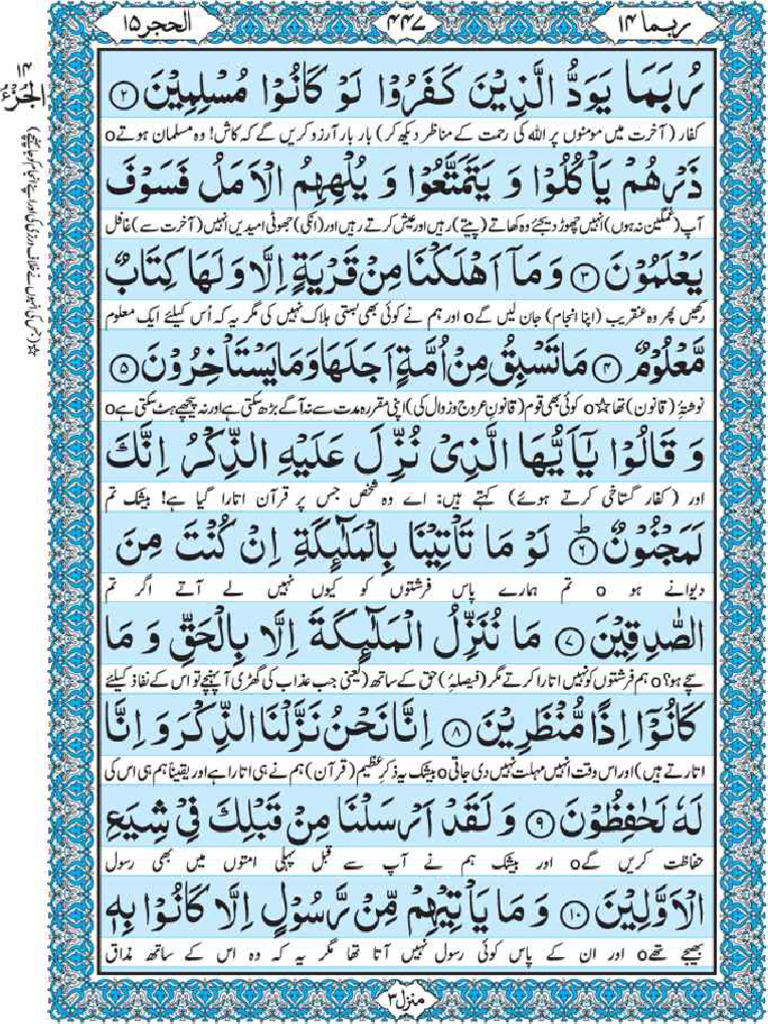 ربما ۱۴
۴۴۷
الحجر ۱۵
۱۴
الجزء
رُبَمَا يَوَدُّ الَّذِيْنَ كَفَرُوْا لَوْ كَانُوْا مُسْلِمِيْنَ ۲
کفار (آخرت میں مومنوں پر اللہ کی رحمت کے مناظر دیکھ کر) بار بار آرزو کریں گے کہ کاش! وہ مسلمان ہوتے o
ذَرْهُمْ يَاْكُلُوْا وَ يَتَمَتَّعُوْا وَ يُلْهِهِمُ الْاَمَلُ فَسَوْفَ
آپ (غمگین نہ ہوں) انہیں چھوڑ دیجئے وہ کھاتے (پیتے) رہیں اور عیش کرتے رہیں اور (انکی) جھوٹی امیدیں انہیں (آخرت سے) غافل
يَعْلَمُوْنَ ۳ وَ مَاۤ اَهْلَكْنَا مِنْ قَرْيَةٍ اِلَّا وَ لَهَا كِتَابٌ
رکھیں پھر وہ عنقریب (اپنا انجام) جان لیں گے o اور ہم نے کوئی بھی بستی ہلاک نہیں کی مگر یہ کہ اُس کیلئے ایک معلوم
مَّعْلُوْمٌ ۴ مَا تَسْبِقُ مِنْ اُمَّةٍ اَجَلَهَا وَ مَا يَسْتَاْخِرُوْنَ ۵
نوشتۂ (قانون) تھا☆ o کوئی بھی قوم (قانونِ عروج و زوال کی) اپنی مقررہ مدت سے نہ آگے بڑھ سکتی ہے اور نہ پیچھے ہٹ سکتی ہے o
وَ قَالُوْا يٰۤاَيُّهَا الَّذِيْ نُزِّلَ عَلَيْهِ الذِّكْرُ اِنَّكَ
اور (کفار گستاخی کرتے ہوئے) کہتے ہیں: اے وہ شخص جس پر قرآن اتارا گیا ہے! بیشک تم
لَمَجْنُوْنٌ ۶ لَوْ مَا تَاْتِيْنَا بِالْمَلٰٓىِٕكَةِ اِنْ كُنْتَ مِنَ
دیوانے ہو o تم ہمارے پاس فرشتوں کو کیوں نہیں لے آتے اگر تم
الصّٰدِقِيْنَ ۷ مَا نُنَزِّلُ الْمَلٰٓىِٕكَةَ اِلَّا بِالْحَقِّ وَ مَا
سچے ہو؟ o ہم فرشتوں کو نہیں اتارا کرتے مگر (فیصلۂ) حق کے ساتھ (یعنی جب عذاب کی گھڑی آ پہنچے تو اس کے نفاذ کیلئے
كَانُوْۤا اِذًا مُّنْظَرِيْنَ ۸ اِنَّا نَحْنُ نَزَّلْنَا الذِّكْرَ وَ اِنَّا
اتارتے ہیں) اور اس وقت انہیں مہلت نہیں دی جاتی o بیشک یہ ذکرِ عظیم (قرآن) ہم نے ہی اتارا ہے اور یقیناً ہم ہی اس کی
لَهٗ لَحٰفِظُوْنَ ۹ وَ لَقَدْ اَرْسَلْنَا مِنْ قَبْلِكَ فِيْ شِيَعِ
حفاظت کریں گے o اور بیشک ہم نے آپ سے قبل پہلی امتوں میں بھی رسول
الْاَوَّلِيْنَ ۱۰ وَ مَا يَاْتِيْهِمْ مِّنْ رَّسُوْلٍ اِلَّا كَانُوْا بِهٖ
بھیجے تھے o اور ان کے پاس کوئی رسول نہیں آتا تھا مگر یہ کہ وہ اس کے ساتھ مذاق
☆ (جس کی انہوں نے خلاف ورزی کی اور اپنے انجام کو جا پہنچے)
منزل ۳